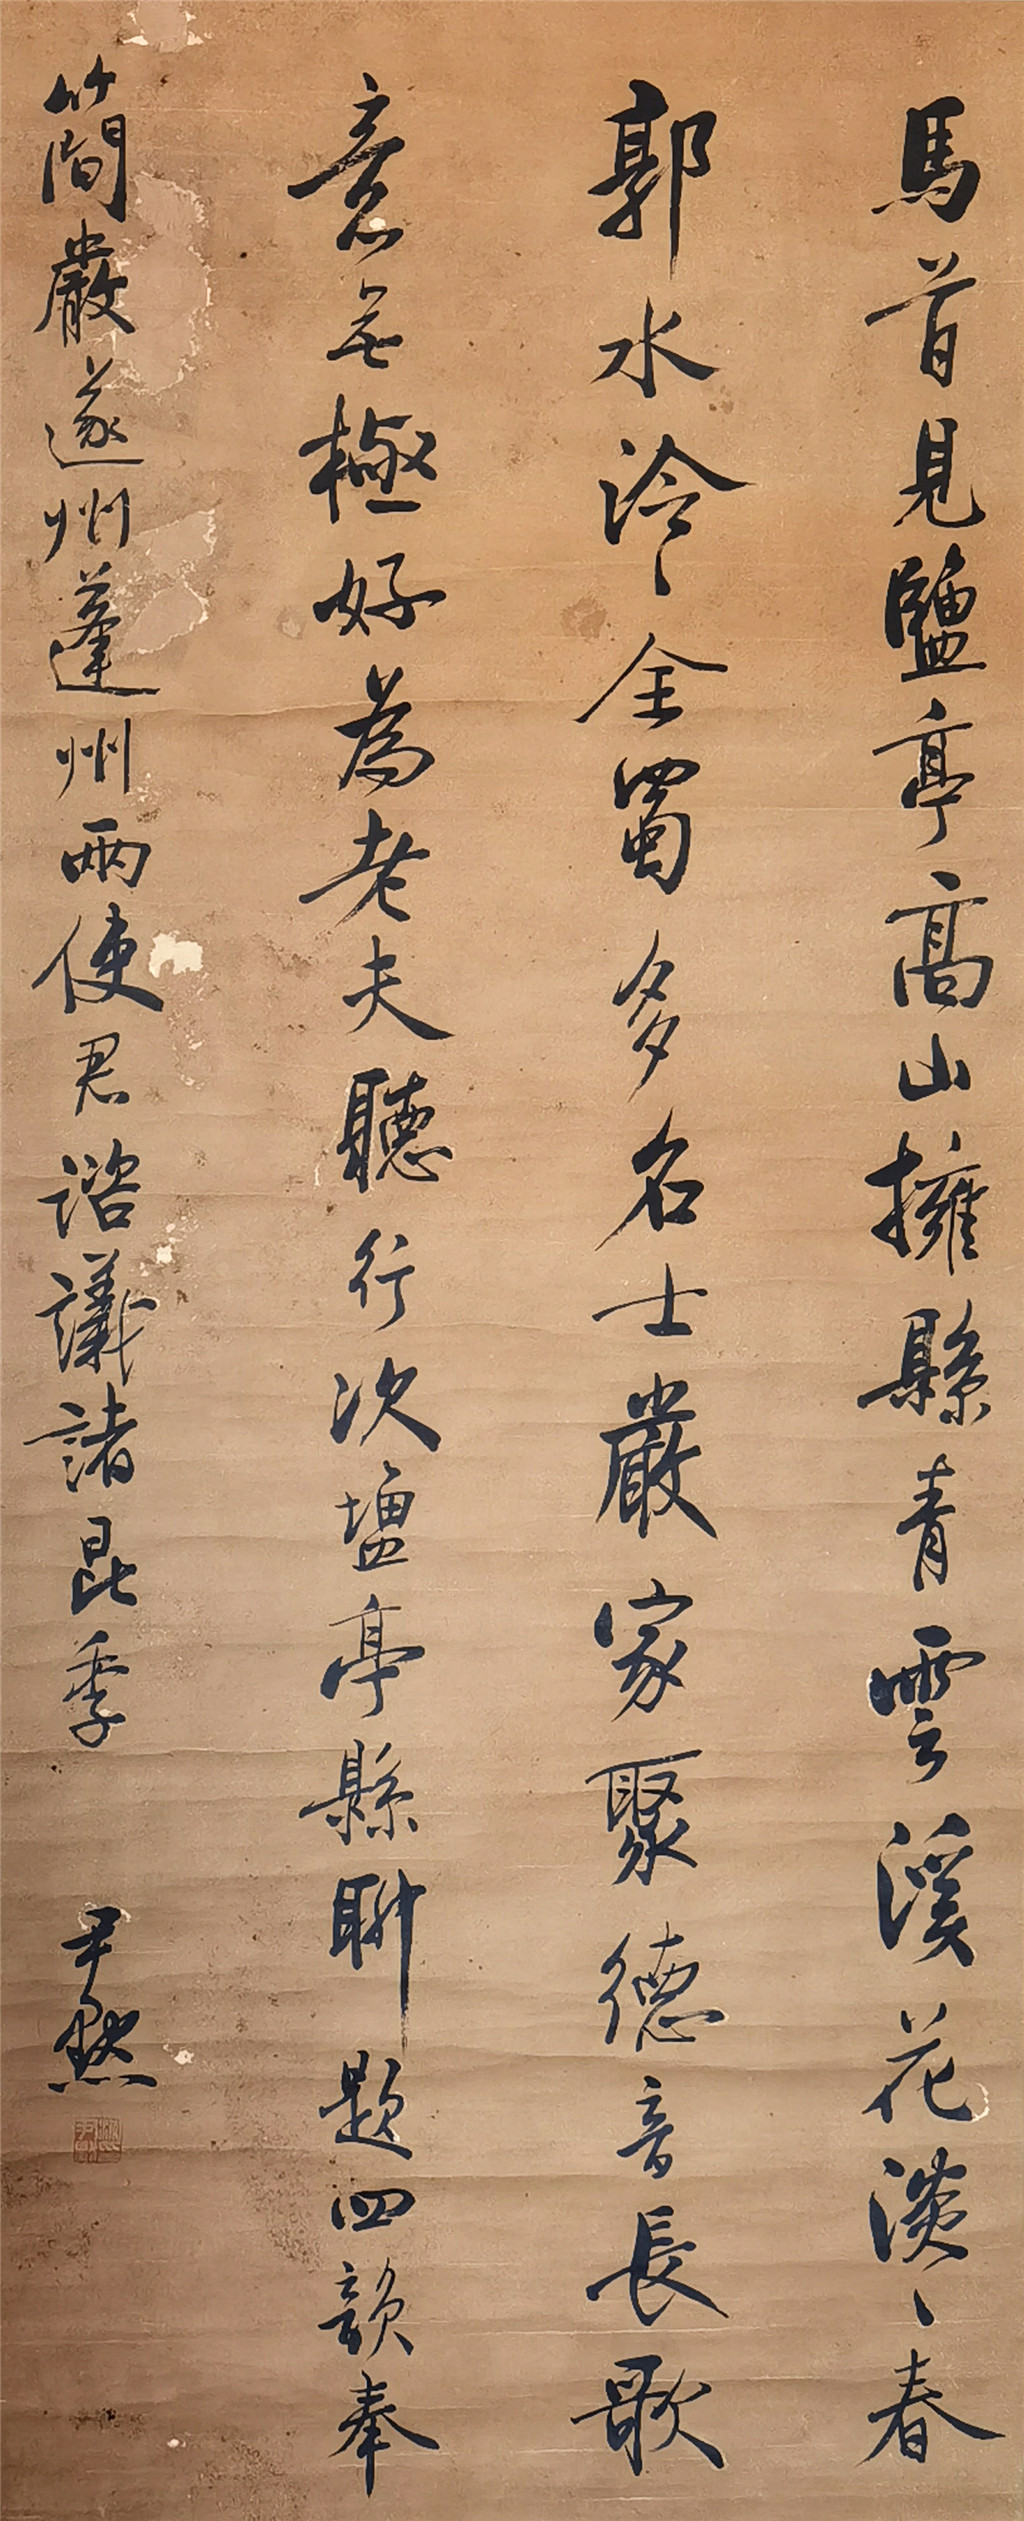 馬首見鹽亭高山擁縣青雲溪花淡〻春
郭水泠〻全蜀多名士嚴家聚德音長歌
意無極好為老夫聽行次塩亭縣聊題四韻奉
簡嚴遂州蓬州兩使君諮議諸昆季
尹默